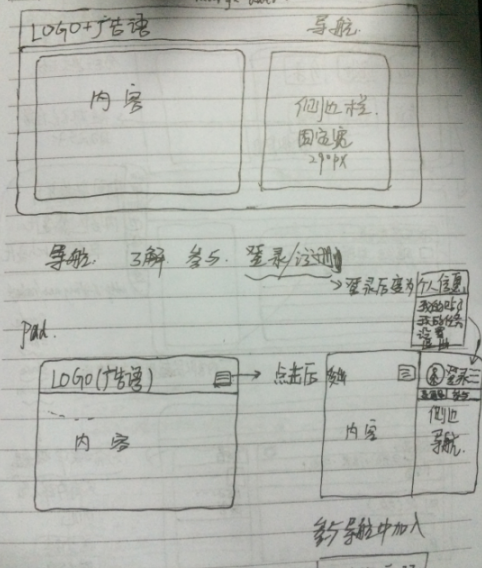 LOGO+广告语 导航
内容
侧边栏
固定宽
290px
导航 了解 参与 登录/注册
登录后变为
个人信息
我的任务
设置
pad.
LOGO(广告语)
点击后
内容
内容
登录
侧边
导航
参与导航中加入